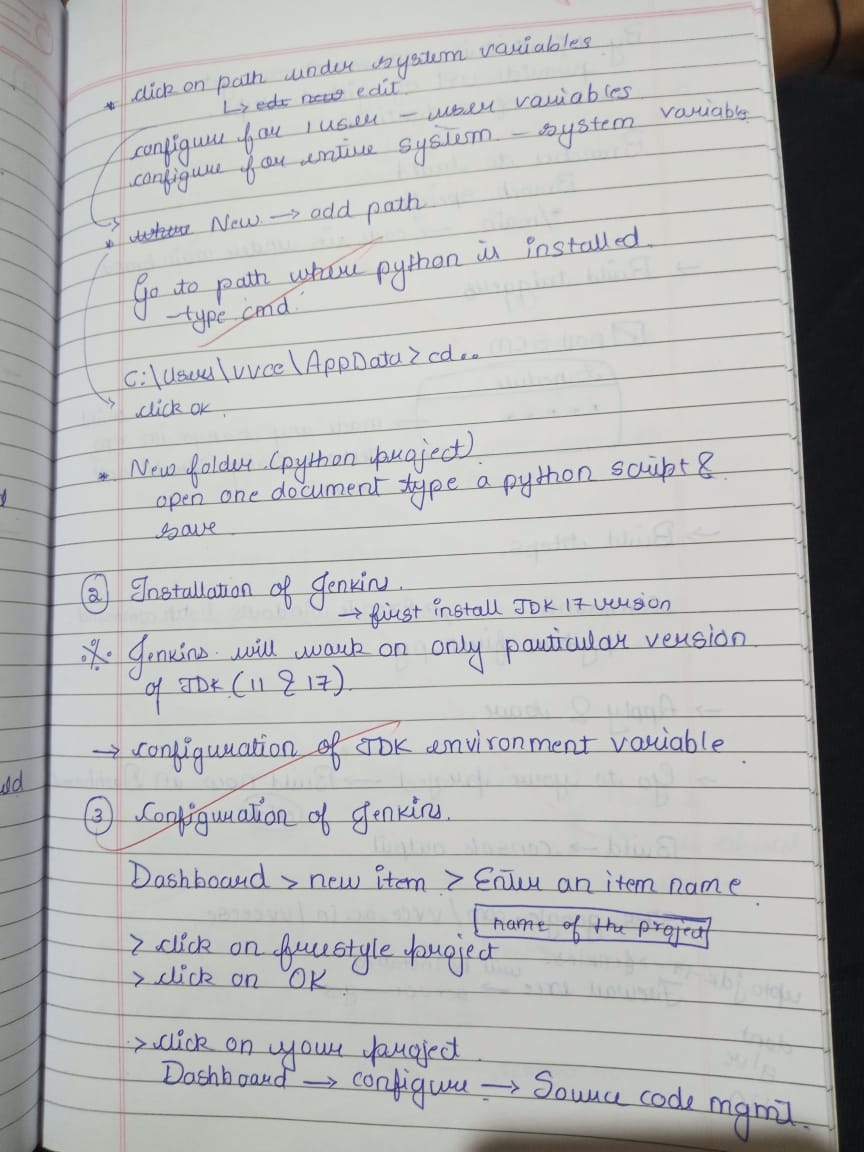 * click on path under system variables.
↳ edt new edit.
configure for 1 user - user variables
configure for entire system - system variable
* where New → add path
Go to path where python is installed.
-type cmd.
C:\Users\vvce\AppData>cd..
click ok.
* New folder (python project)
open one document type a python script &
save
② Installation of Jenkins.
→ first install JDK 17 version
※ Jenkins will work on only particular version
of JDK (11 & 17).
→ configuration of JDK environment variable.
③ Configuration of Jenkins.
Dashboard > new item > Enter an item name
name of the project
> click on freestyle project
> click on OK.
> click on your project.
Dashboard → configure → Source code mgmt.